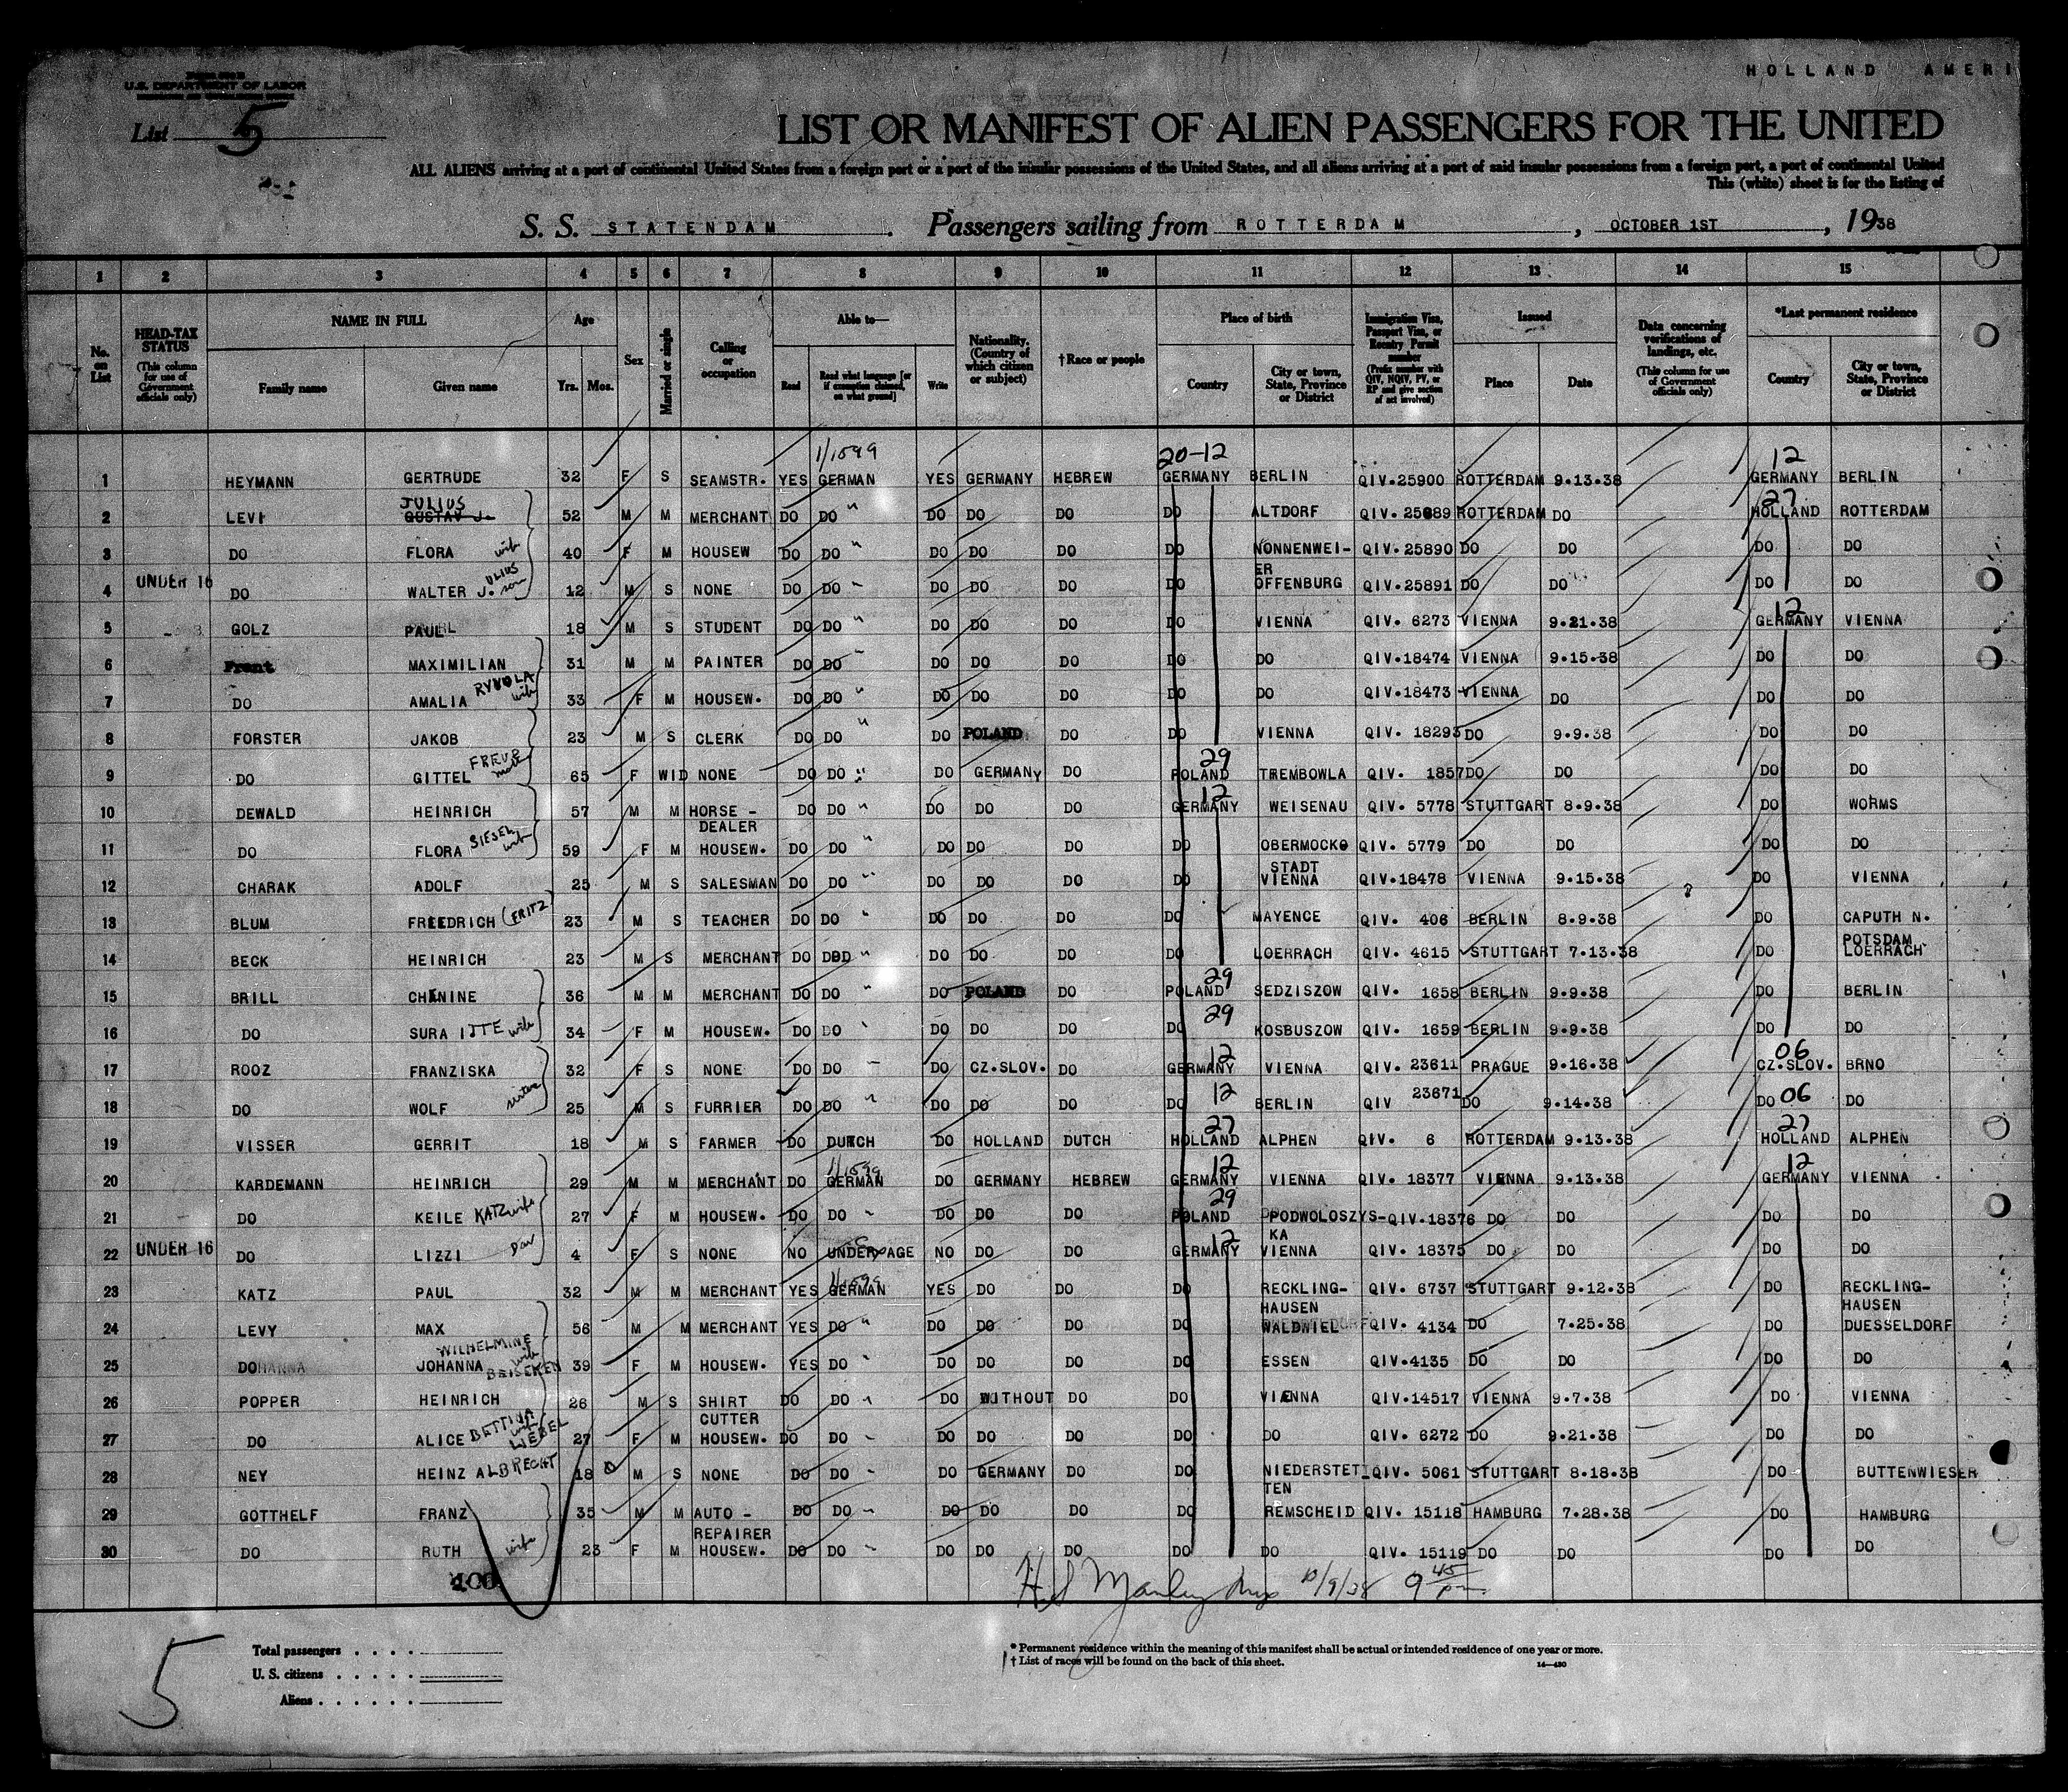 HOLLAND AMERI
U.S. DEPARTMENT OF LABOR
List 5
LIST OR MANIFEST OF ALIEN PASSENGERS FOR THE UNITED
ALL ALIENS arriving at a port of continental United States from a foreign port or a port of the insular possessions of the United States, and all aliens arriving at a port of said insular possessions from a foreign port, a port of continental United
This (white) sheet is for the listing of
S. S. STATENDAM . Passengers sailing from ROTTERDAM , OCTOBER 1ST , 1938
1 2 3 4 5 6 7 8 9 10 11 12 13 14 15
No. on List HEAD-TAX STATUS (This column for use of Government officials only) NAME IN FULL Family name Given name Age Yrs. Mos. Sex Married or single Calling or occupation Able to— Read Read what language [or if exemption claimed, on what ground] Write Nationality. (Country of which citizen or subject) †Race or people Place of birth Country City or town, State, Province or District Immigration Visa, Passport Visa, or Reentry Permit number (Prefix number with QIV, NQIV, PV, or RP and give section of act involved) Issued Place Date Data concerning verifications of landings, etc. (This column for use of Government officials only) *Last permanent residence Country City or town, State, Province or District
1/1599 20-12 12
1 HEYMANN GERTRUDE 32 F S SEAMSTR. YES GERMAN YES GERMANY HEBREW GERMANY BERLIN QIV.25900 ROTTERDAM 9.13.38 GERMANY BERLIN
JULIUS 27
2 LEVI GUSTAV J. 52 M M MERCHANT DO DO " DO DO DO DO ALTDORF QIV.25889 ROTTERDAM DO HOLLAND ROTTERDAM
3 DO FLORA wife 40 F M HOUSEW DO DO " DO DO DO DO NONNENWEI- QIV.25890 DO DO DO DO
ER
4 UNDER 16 DO WALTER J.ULIUS son 12 M S NONE DO DO DO DO DO DO OFFENBURG QIV.25891 DO DO DO DO
12
5 GOLZ PAUL 18 M S STUDENT DO DO " DO DO DO DO VIENNA QIV. 6273 VIENNA 9.21.38 GERMANY VIENNA
6 Frant MAXIMILIAN 31 M M PAINTER DO DO DO DO DO DO DO QIV.18474 VIENNA 9.15.38 DO DO
7 DO AMALIA wife 33 F M HOUSEW. DO DO " DO DO DO DO DO QIV.18473 VIENNA DO DO DO
8 FORSTER JAKOB 23 M S CLERK DO DO " DO POLAND DO DO VIENNA QIV. 18293 DO 9.9.38 DO DO
29
9 DO GITTEL 65 F WID NONE DO DO " DO GERMANY DO POLAND TREMBOWLA QIV. 1857 DO DO DO DO
12
10 DEWALD HEINRICH 57 M M HORSE - DO DO " DO DO DO GERMANY WEISENAU QIV. 5778 STUTTGART 8.9.38 DO WORMS
DEALER
11 DO FLORA wife 59 F M HOUSEW. DO DO " DO DO DO DO OBERMOCKO QIV. 5779 DO DO DO DO
STADT
12 CHARAK ADOLF 25 M S SALESMAN DO DO " DO DO DO DO VIENNA QIV.18478 VIENNA 9.15.38 DO VIENNA
13 BLUM FREEDRICH (FRITZ) 23 M S TEACHER DO DO " DO DO DO DO MAYENCE QIV. 406 BERLIN 8.9.38 DO CAPUTH N.
POTSDAM
14 BECK HEINRICH 23 M S MERCHANT DO DO " DO DO DO DO LOERRACH QIV. 4615 STUTTGART 7.13.38 DO LOERRACH
29
15 BRILL CHANINE 36 M M MERCHANT DO DO " DO POLAND DO POLAND SEDZISZOW QIV. 1658 BERLIN 9.9.38 DO BERLIN
29
16 DO SURA ITTE wife 34 F M HOUSEW. DO DO " DO DO DO DO KOSBUSZOW QIV. 1659 BERLIN 9.9.38 DO DO
12 06
17 ROOZ FRANZISKA 32 F S NONE DO DO DO CZ.SLOV. DO GERMANY VIENNA QIV. 23611 PRAGUE 9.16.38 CZ.SLOV. BRNO
18 DO WOLF 25 M S FURRIER DO DO " DO DO DO DO 12 BERLIN QIV 23671 DO 9.14.38 DO 06 DO
27 27
19 VISSER GERRIT 18 M S FARMER DO DUTCH DO HOLLAND DUTCH HOLLAND ALPHEN QIV. 6 ROTTERDAM 9.13.38 HOLLAND ALPHEN
1/1599 12 12
20 KARDEMANN HEINRICH 29 M M MERCHANT DO GERMAN DO GERMANY HEBREW GERMANY VIENNA QIV. 18377 VIENNA 9.13.38 GERMANY VIENNA
29
21 DO KEILE KATZ wife 27 F M HOUSEW. DO DO DO DO DO POLAND PODWOLOSZYS- QIV.18376 DO DO DO DO
12 KA
22 UNDER 16 DO LIZZI Dau 4 F S NONE NO UNDER AGE NO DO DO GERMANY VIENNA QIV. 18375 DO DO DO DO
1/1599
23 KATZ PAUL 32 M M MERCHANT YES GERMAN YES DO DO DO RECKLING- QIV. 6737 STUTTGART 9.12.38 DO RECKLING-
HAUSEN HAUSEN
24 LEVY MAX 56 M M MERCHANT YES DO " DO DO DO DO WALDWIEL QIV. 4134 DO 7.25.38 DO DUESSELDORF
WILHELMINE wife
25 DO JOHANNA BEISEKEN 39 F M HOUSEW. YES DO DO DO DO DO ESSEN QIV.4135 DO DO DO DO
26 POPPER HEINRICH 28 M S SHIRT DO DO DO WITHOUT DO DO VIENNA QIV.14517 VIENNA 9.7.38 DO VIENNA
CUTTER
27 DO ALICE BETTINA wife 27 F M HOUSEW. DO DO DO DO DO DO DO QIV. 6272 DO 9.21.38 DO DO
28 NEY HEINZ ALBRECHT 18 M S NONE DO DO DO GERMANY DO DO NIEDERSTET QIV. 5061 STUTTGART 8.18.38 DO BUTTENWIESER
TEN
29 GOTTHELF FRANZ 35 M M AUTO - DO DO DO DO DO DO REMSCHEID QIV. 15118 HAMBURG 7.28.38 DO HAMBURG
REPAIRER
30 DO RUTH wife 23 F M HOUSEW. DO DO DO DO DO DO DO QIV. 15119 DO DO DO DO
10/9/38 9 45 pm
Total passengers . . . .
U. S. citizens . . . . .
Aliens . . . . . .
5
* Permanent residence within the meaning of this manifest shall be actual or intended residence of one year or more.
† List of races will be found on the back of this sheet.
14—430